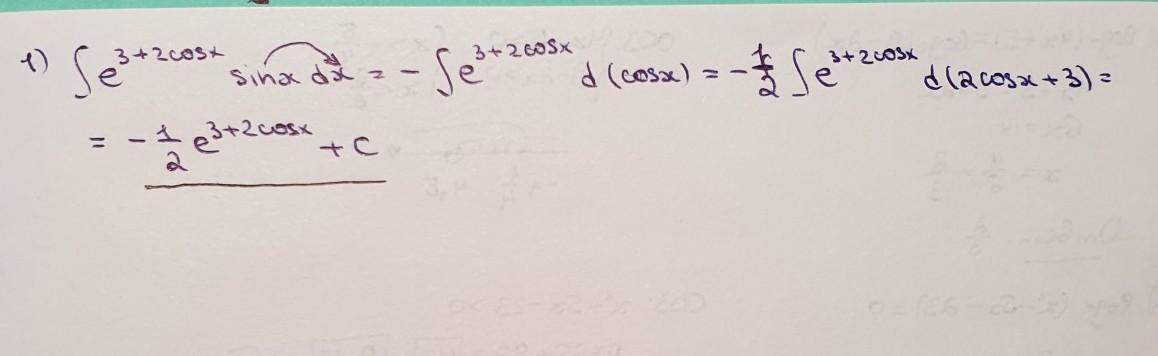 1) ∫e^{3+2cosx} sinx dx = -∫e^{3+2cosx} d(cosx) = -\frac{1}{2}∫e^{3+2cosx} d(2cosx+3) =
= -\frac{1}{2}e^{3+2cosx} + C